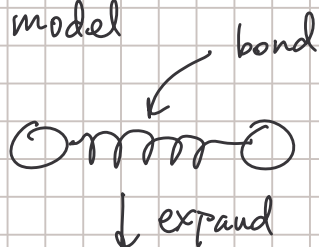 model
bond
expand